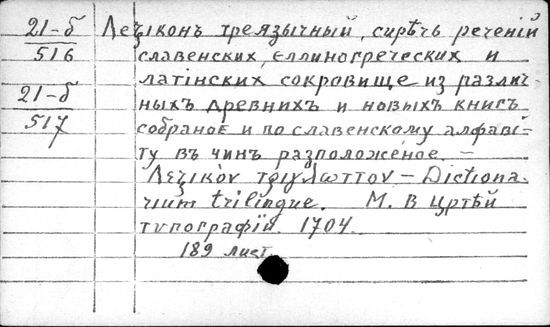 21-б
516
21-б
517
Леѯіконъ треязычный, сирѣчь реченій
славенских, еллиногреческих и
латінских сокровище из различ-
ныхъ древних и новыхъ книгъ
собраное и по славенскому алфаві-
ту въ чинъ расположеное. –
Λεξικὸν τριγλωττον – Dictiona-
rium trilingue. М. В Цртѣй
типографіи. 1704.
189 лист.